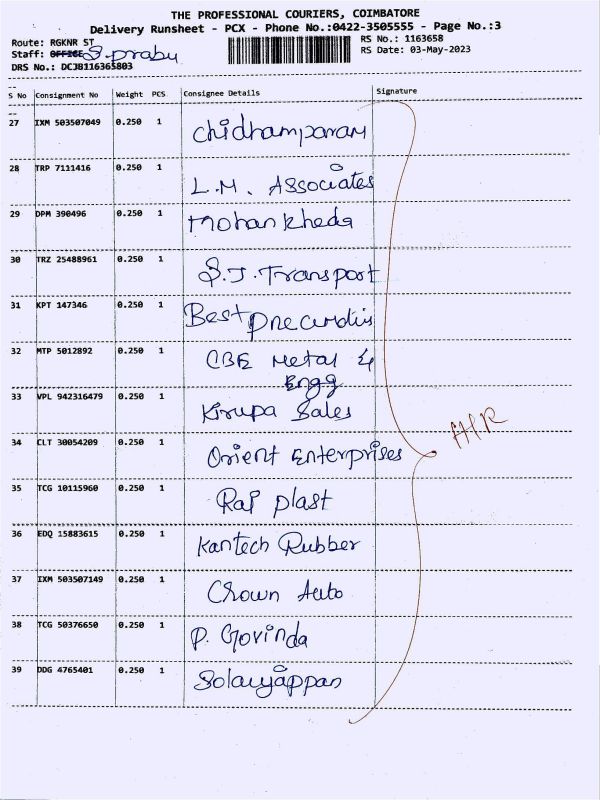 THE PROFESSIONAL COURIERS, COIMBATORE
Delivery Runsheet - PCX - Phone No.:0422-3505555 - Page No.:3
Route: RGKNR ST RS No.: 1163658
Staff: OFFICE S.prabu RS Date: 03-May-2023
DRS No.: DCJB116365803
--
S No Consignment No Weight PCS Consignee Details Signature
--
27 IXM 503507049 0.250 1 Chidhamparam
28 TRP 7111416 0.250 1 L.M. Associates
29 DPM 390496 0.250 1 Mohan Kheda
30 TRZ 25488961 0.250 1 S.J. Transport
31 KPT 147346 0.250 1 Best
32 MTP 5012892 0.250 1 CBE Metal &
Engg
33 VPL 942316479 0.250 1 Kirupa Sales
34 CLT 30054209 0.250 1 Orient Enterprises
35 TCG 10115960 0.250 1 Raj plast
36 EDQ 15883615 0.250 1 Kantech Rubber
37 IXM 503507149 0.250 1 Crown Auto
38 TCG 50376650 0.250 1 P. Govinda
39 DDG 4765401 0.250 1 Solaiyappan